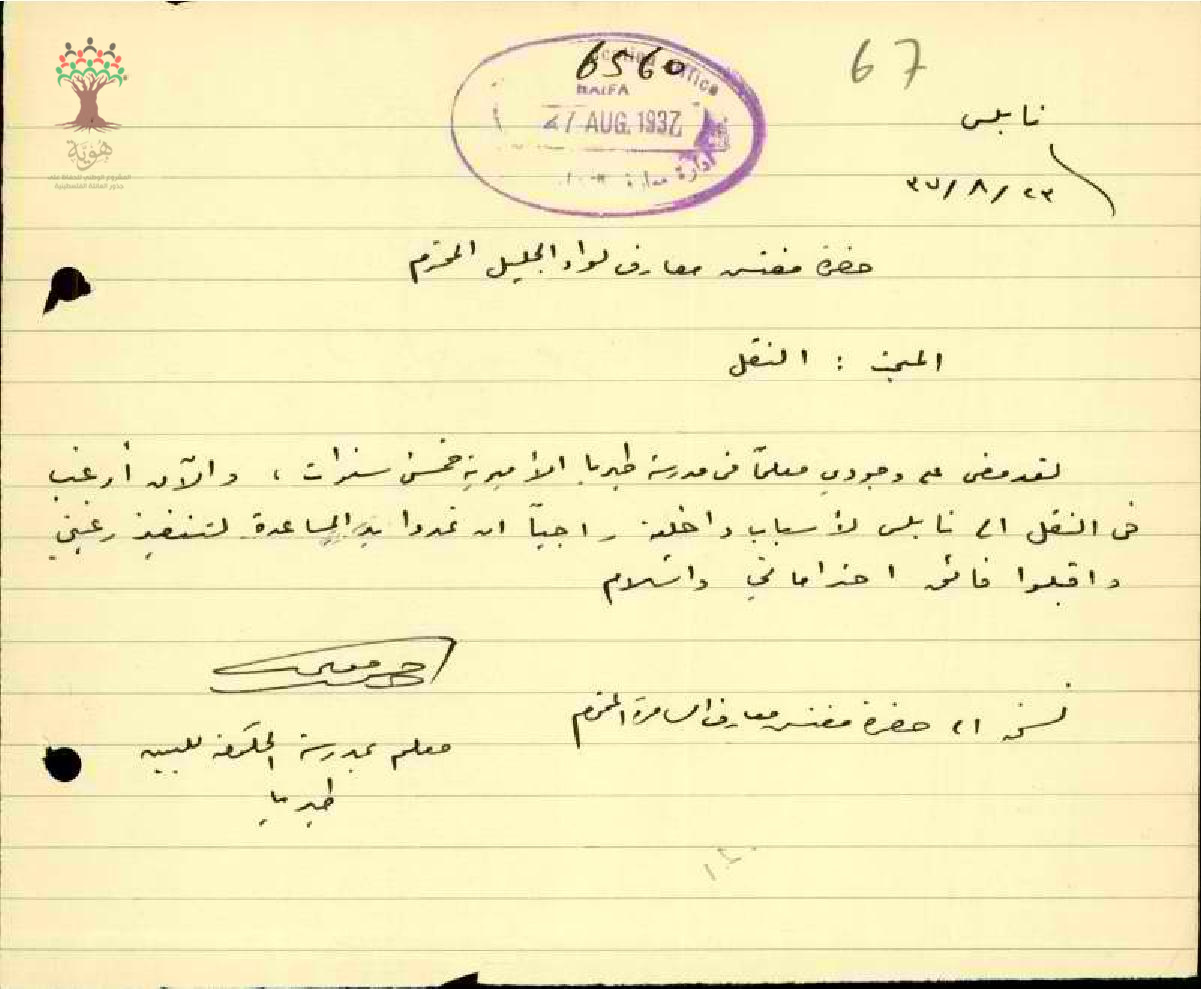 67
6560
Education Office
HAIFA
27 AUG. 1937
ادارة معارف
هوية
المشروع الوطني للحفاظ على
جذور العائلة الفلسطينية
نابلس
٢٣/٨/٣٧
حضرة مفتش معارف لواء الجليل المحترم
المبحث : النقل
لقد مضى على وجودي معلماً في مدرسة طبريا الأميرية خمس سنوات ، والآن أرغب
في النقل الى نابلس لأسباب داخلية راجياً ان تمدوا يد المساعدة لتنفيذ رغبتي
واقبلوا فائق احتراماتي والسلام
نسخة الى حضرة مفتش معارف السامرة المحترم
معلم بمدرسة الحكومة للبنين
طبريا